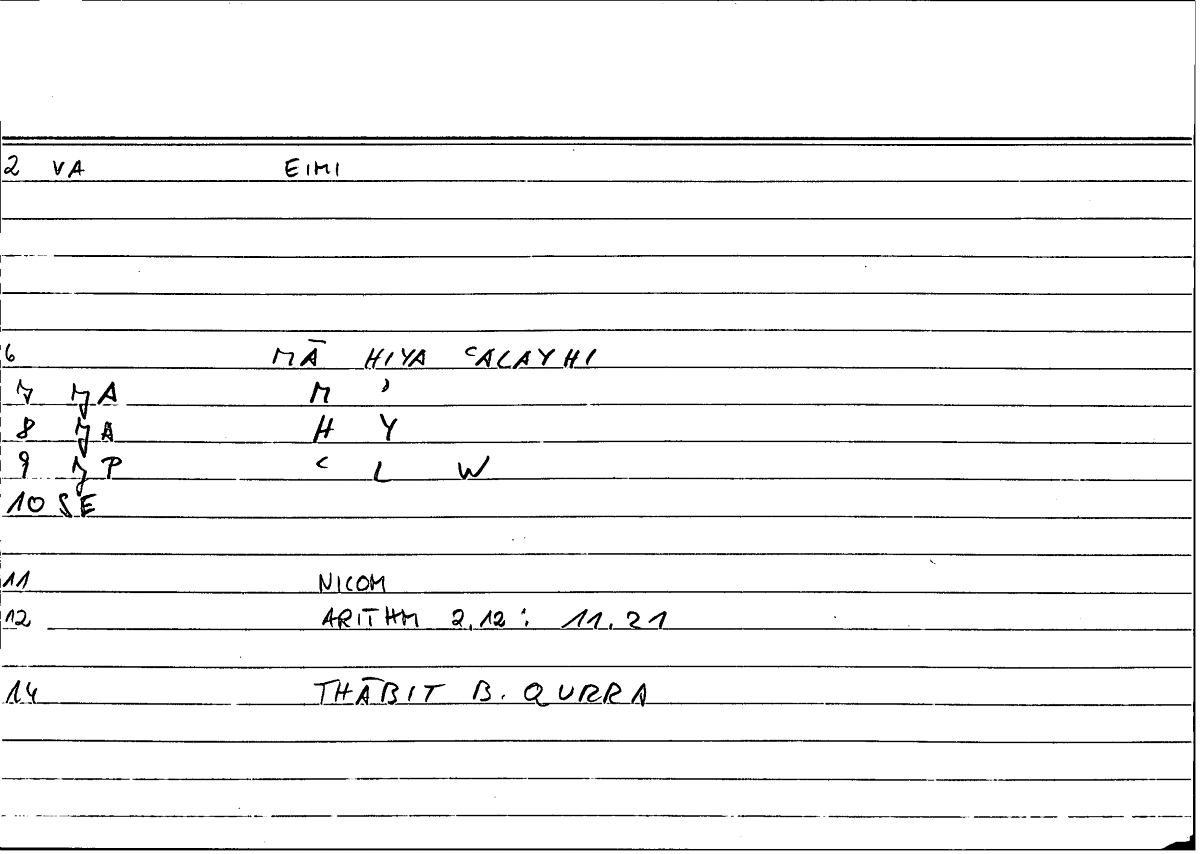 2 VA EIMI
6 MĀ HIYA ʿALAYHI
7 MA M ʾ
8 MA H Y
9 MP ʿ L W
10 SE
11 NICOM
12 ARITHM 2.12: 11.21
14 THĀBIT B. QURRA